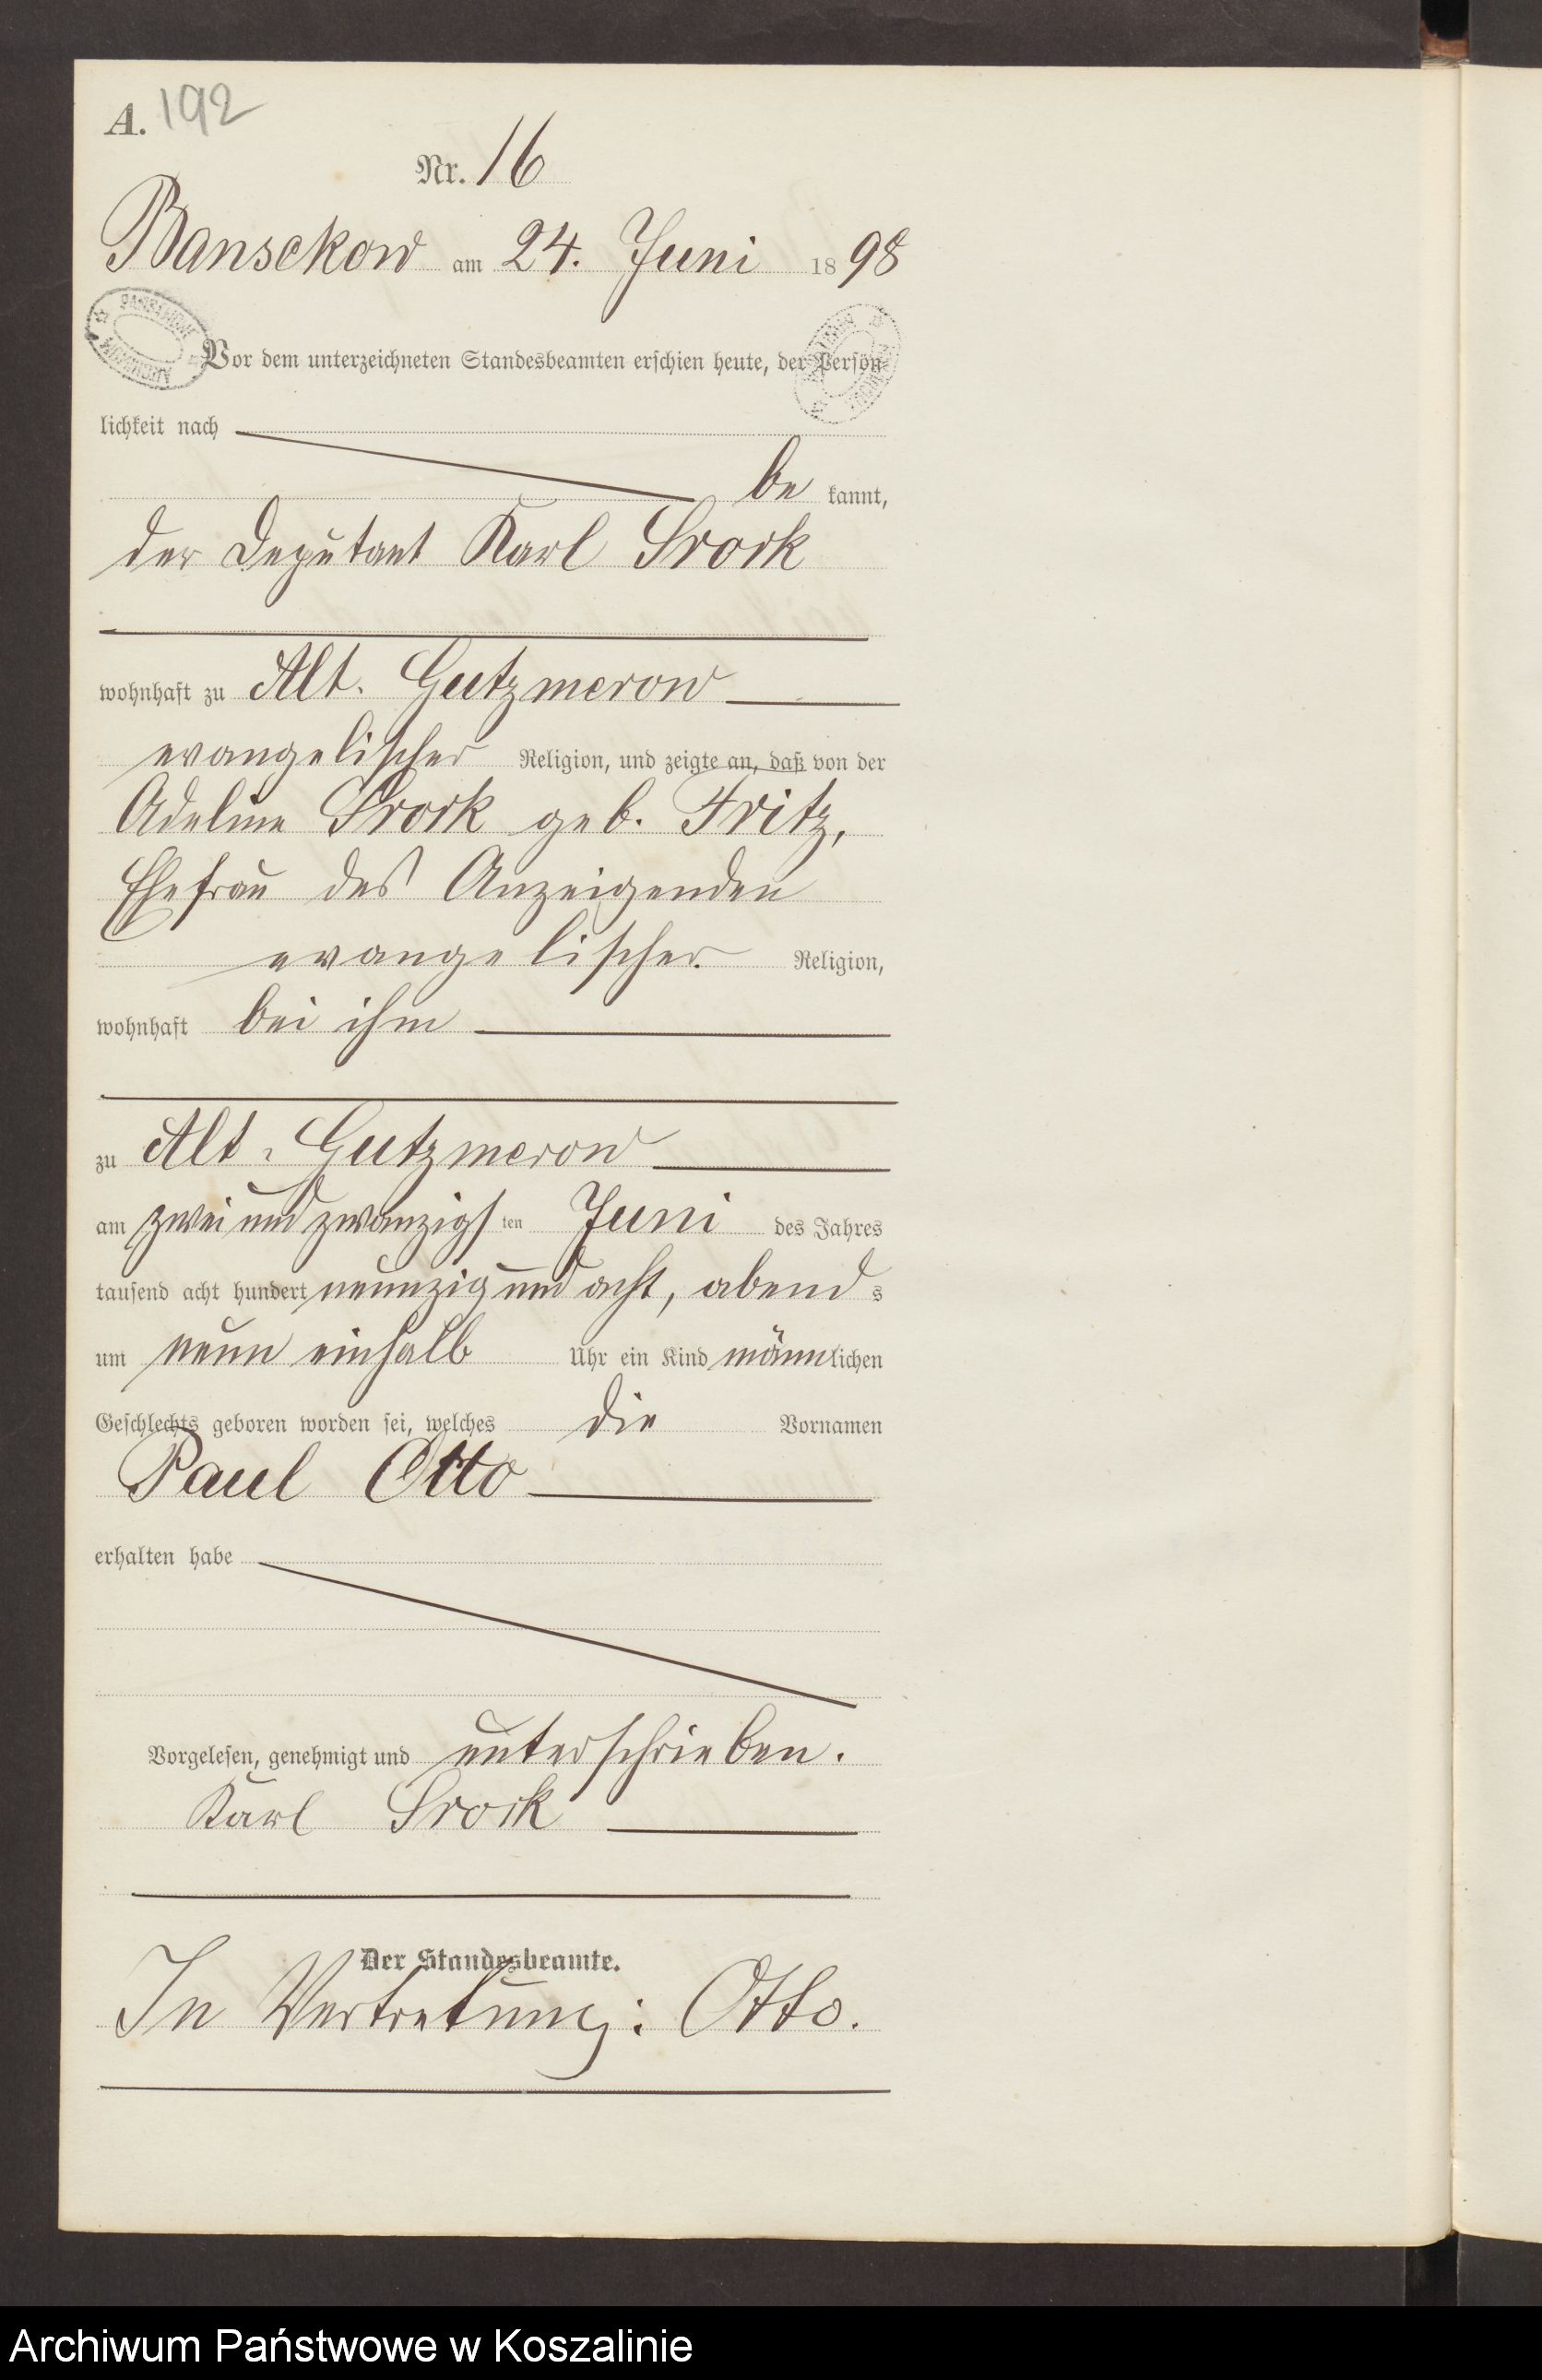 A. 192
Nr. 16
Bansekow am 24. Juni 1898
Vor dem unterzeichneten Standesbeamten erschien heute, der Persön-
lichkeit nach
be kannt,
der Deputant Karl Srock
wohnhaft zu Alt. Gutzmerow
evangelischer Religion, und zeigte an, daß von der
Adeline Srock geb. Fritz,
Ehefrau des Anzeigenden
evangelischer Religion,
wohnhaft bei ihm
zu Alt-Gutzmerow
am zwei und zwanzigsten Juni des Jahres
tausend acht hundert neunzig und acht, abends
um neun einhalb Uhr ein Kind männlichen
Geschlechts geboren worden sei, welches die Vornamen
Paul Otto
erhalten habe
Vorgelesen, genehmigt und unterschrieben.
Karl Srock
Der Standesbeamte.
In Vertretung: Otto.
Archiwum Państwowe w Koszalinie